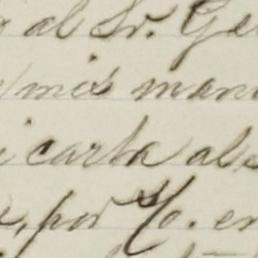 al Sr. Ge
mis man
carta al
por Yo. en